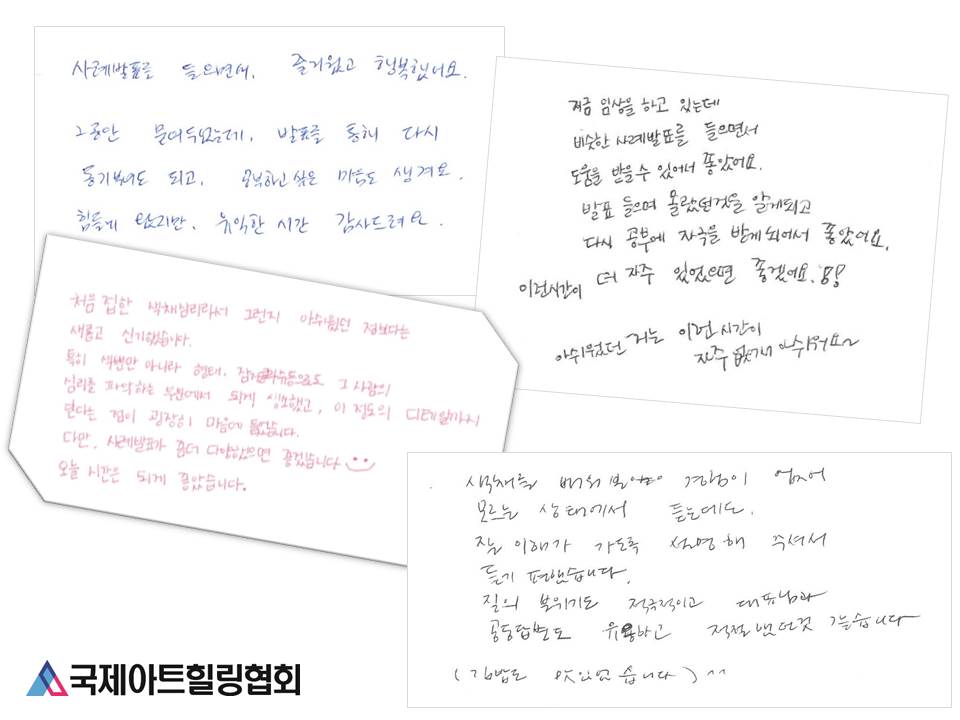 사례발표를 들으면서, 즐거웠고 행복했어요.
그동안 묻어두었는데, 발표를 통해 다시
동기부여도 되고, 싶은 마음도 생겨요.
힘들게 왔지만, 유익한 시간 감사드려요.
지금 임상을 하고 있는데
비슷한 사례발표를 들으면서
도움을 받을 수 있어서 좋았어요.
발표 들으며 몰랐던것을 알게되고
다시 공부에 자극을 받게되어서 좋았어요.
이런시간이 더 자주 있었으면 좋겠어요.
아쉬웠던 거는 이런 시간이
자주 없는게 아쉬워요~
처음 접한 색채심리라서 그런지 아쉬웠던 점보다는
새롭고 신기했습니다.
특히 색뿐만 아니라 형태, 그 사람의
심리를 파악하는 부분에서 되게 생소했고, 이 정도의 디테일까지
된다는 점이 굉장히 마음에 들었습니다.
다만, 사례발표가 좀더 다양했으면 좋겠습니다
오늘 시간은 되게 좋았습니다.
색채를 배워 경험이 없어
모르는 상태에서 듣는데도,
잘 이해가 가도록 설명해 주셔서
듣기 편했습니다.
질의 분위기도 적극적이고 대표님과
유용하고 적절했던것 같습니다
(김밥도 맛있었습니다) ^^
국제아트힐링협회